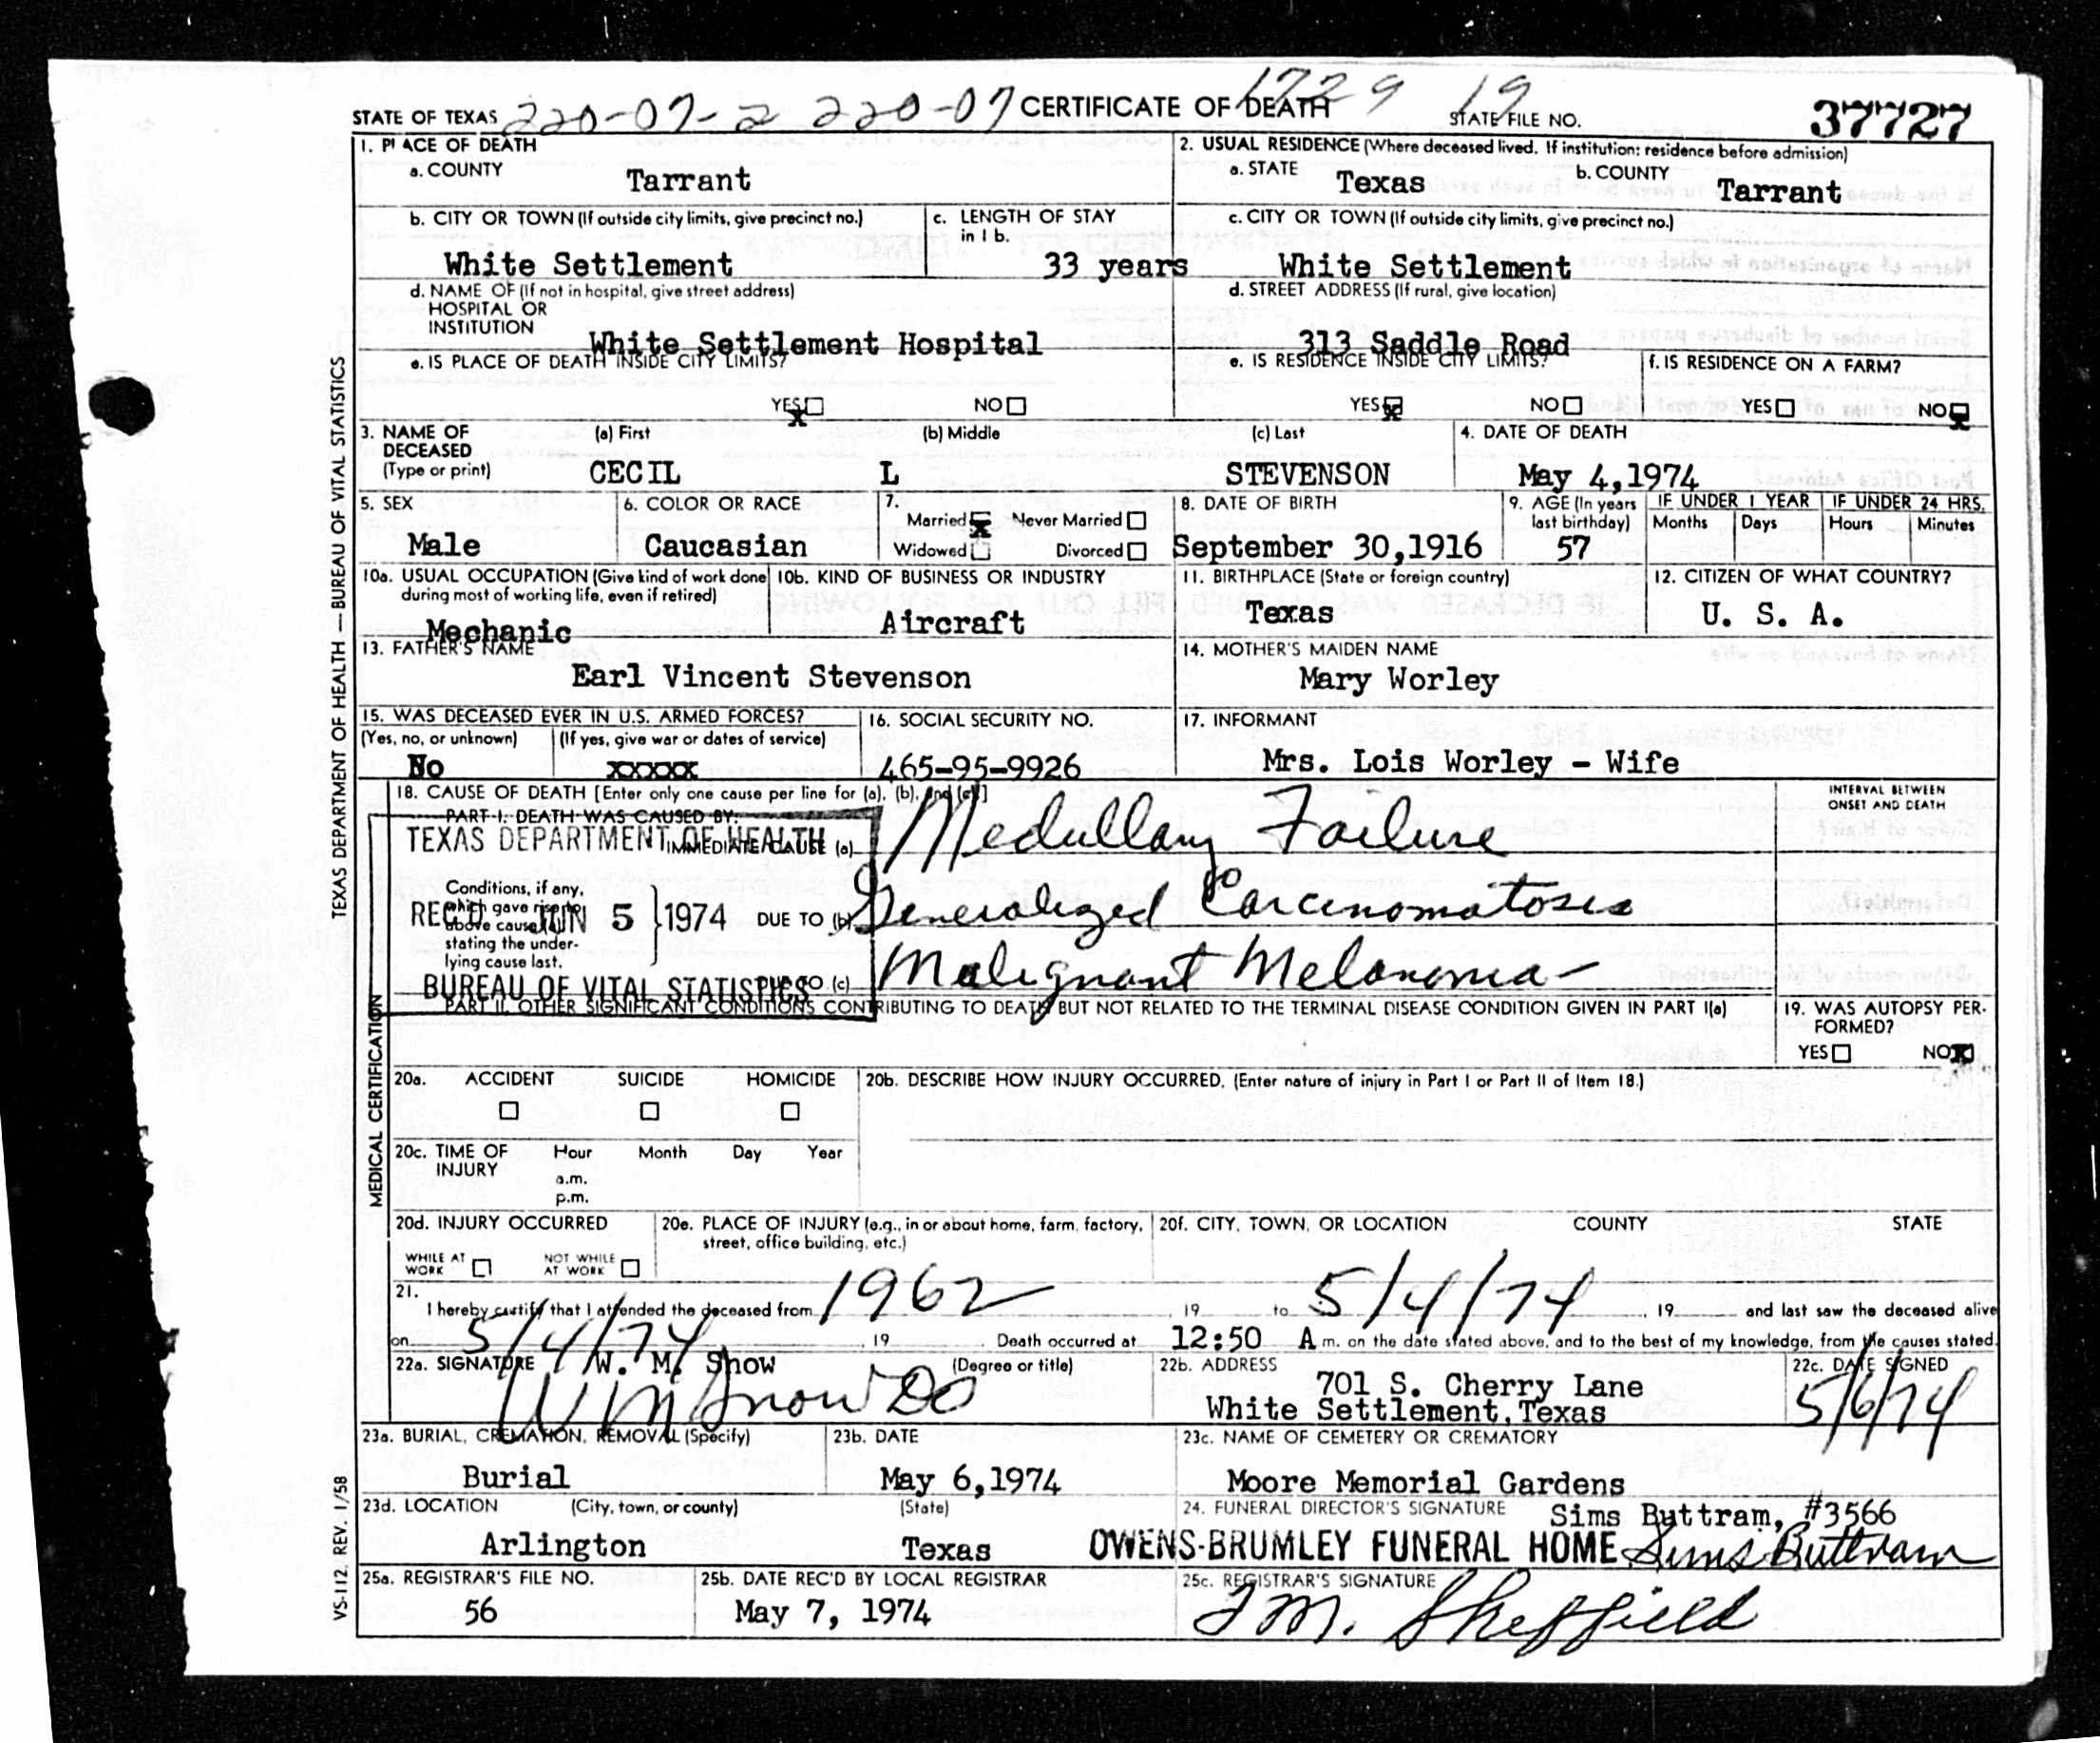 STATE OF TEXAS 220-07-2 220-07 CERTIFICATE OF DEATH 1729 19 STATE FILE NO. 37727
1. PLACE OF DEATH
a. COUNTY Tarrant
2. USUAL RESIDENCE (Where deceased lived. If institution: residence before admission)
a. STATE Texas b. COUNTY Tarrant
b. CITY OR TOWN (If outside city limits, give precinct no.) White Settlement
c. LENGTH OF STAY in 1 b. 33 years
c. CITY OR TOWN (If outside city limits, give precinct no.) White Settlement
d. NAME OF (If not in hospital, give street address)
HOSPITAL OR
INSTITUTION White Settlement Hospital
d. STREET ADDRESS (If rural, give location) 313 Saddle Road
e. IS PLACE OF DEATH INSIDE CITY LIMITS?
YES X NO
e. IS RESIDENCE INSIDE CITY LIMITS?
YES X NO
f. IS RESIDENCE ON A FARM?
YES NO X
3. NAME OF DECEASED (Type or print)
(a) First CECIL (b) Middle L (c) Last STEVENSON
4. DATE OF DEATH May 4,1974
5. SEX Male
6. COLOR OR RACE Caucasian
7. Married X Never Married
Widowed Divorced
8. DATE OF BIRTH September 30,1916
9. AGE (In years last birthday) 57
IF UNDER 1 YEAR Months Days
IF UNDER 24 HRS. Hours Minutes
10a. USUAL OCCUPATION (Give kind of work done during most of working life, even if retired) Mechanic
10b. KIND OF BUSINESS OR INDUSTRY Aircraft
11. BIRTHPLACE (State or foreign country) Texas
12. CITIZEN OF WHAT COUNTRY? U. S. A.
13. FATHER'S NAME Earl Vincent Stevenson
14. MOTHER'S MAIDEN NAME Mary Worley
15. WAS DECEASED EVER IN U.S. ARMED FORCES?
(Yes, no, or unknown) No (If yes, give war or dates of service) xxxxx
16. SOCIAL SECURITY NO. 465-95-9926
17. INFORMANT Mrs. Lois Worley - Wife
18. CAUSE OF DEATH [Enter only one cause per line for (a), (b), and (c)]
INTERVAL BETWEEN ONSET AND DEATH
PART I. DEATH WAS CAUSED BY:
IMMEDIATE CAUSE (a) Medullary Failure
Conditions, if any, which gave rise to above cause (a) stating the under-lying cause last.
DUE TO (b) Generalized Carcinomatosis
DUE TO (c) Malignant Melanoma
TEXAS DEPARTMENT OF HEALTH
REC'D JUN 5 1974
BUREAU OF VITAL STATISTICS
PART II. OTHER SIGNIFICANT CONDITIONS CONTRIBUTING TO DEATH BUT NOT RELATED TO THE TERMINAL DISEASE CONDITION GIVEN IN PART I(a)
19. WAS AUTOPSY PER-FORMED?
YES NO X
20a. ACCIDENT SUICIDE HOMICIDE
20b. DESCRIBE HOW INJURY OCCURRED. (Enter nature of injury in Part I or Part II of Item 18.)
20c. TIME OF INJURY Hour Month Day Year
a.m.
p.m.
20d. INJURY OCCURRED
WHILE AT WORK NOT WHILE AT WORK
20e. PLACE OF INJURY (e.g., in or about home, farm, factory, street, office building, etc.)
20f. CITY, TOWN, OR LOCATION COUNTY STATE
21. I hereby certify that I attended the deceased from 1962, 19 to 5/4/74, 19 and last saw the deceased alive
on 5/4/74, 19 . Death occurred at 12:50 A m. on the date stated above, and to the best of my knowledge, from the causes stated.
22a. SIGNATURE W. M. Snow (Degree or title)
WM Snow DO
22b. ADDRESS 701 S. Cherry Lane
White Settlement, Texas
22c. DATE SIGNED 5/6/74
23a. BURIAL, CREMATION, REMOVAL (Specify) Burial
23b. DATE May 6,1974
23c. NAME OF CEMETERY OR CREMATORY Moore Memorial Gardens
23d. LOCATION (City, town, or county) (State)
Arlington Texas
24. FUNERAL DIRECTOR'S SIGNATURE Sims Buttram, #3566
OWENS-BRUMLEY FUNERAL HOME Sims Buttram
25a. REGISTRAR'S FILE NO. 56
25b. DATE REC'D BY LOCAL REGISTRAR May 7, 1974
25c. REGISTRAR'S SIGNATURE
J M. Sheffield
TEXAS DEPARTMENT OF HEALTH — BUREAU OF VITAL STATISTICS
MEDICAL CERTIFICATION
VS-112, REV. 1/58